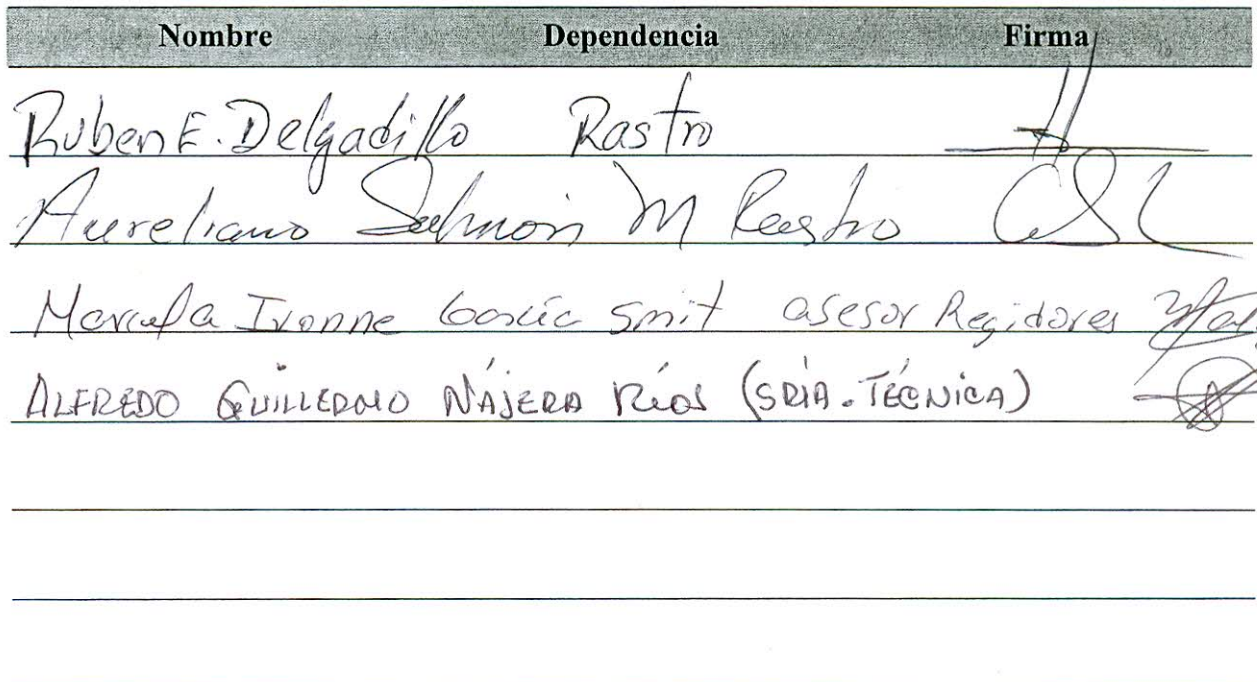 Nombre Dependencia Firma
Ruben E. Delgadillo Rastro
Aureliano Salmon M Rastro
Marcela Ivonne García Smit asesor Regidores
ALFREDO GUILLERMO NÁJERA RÍOS (SRIA. TÉCNICA)